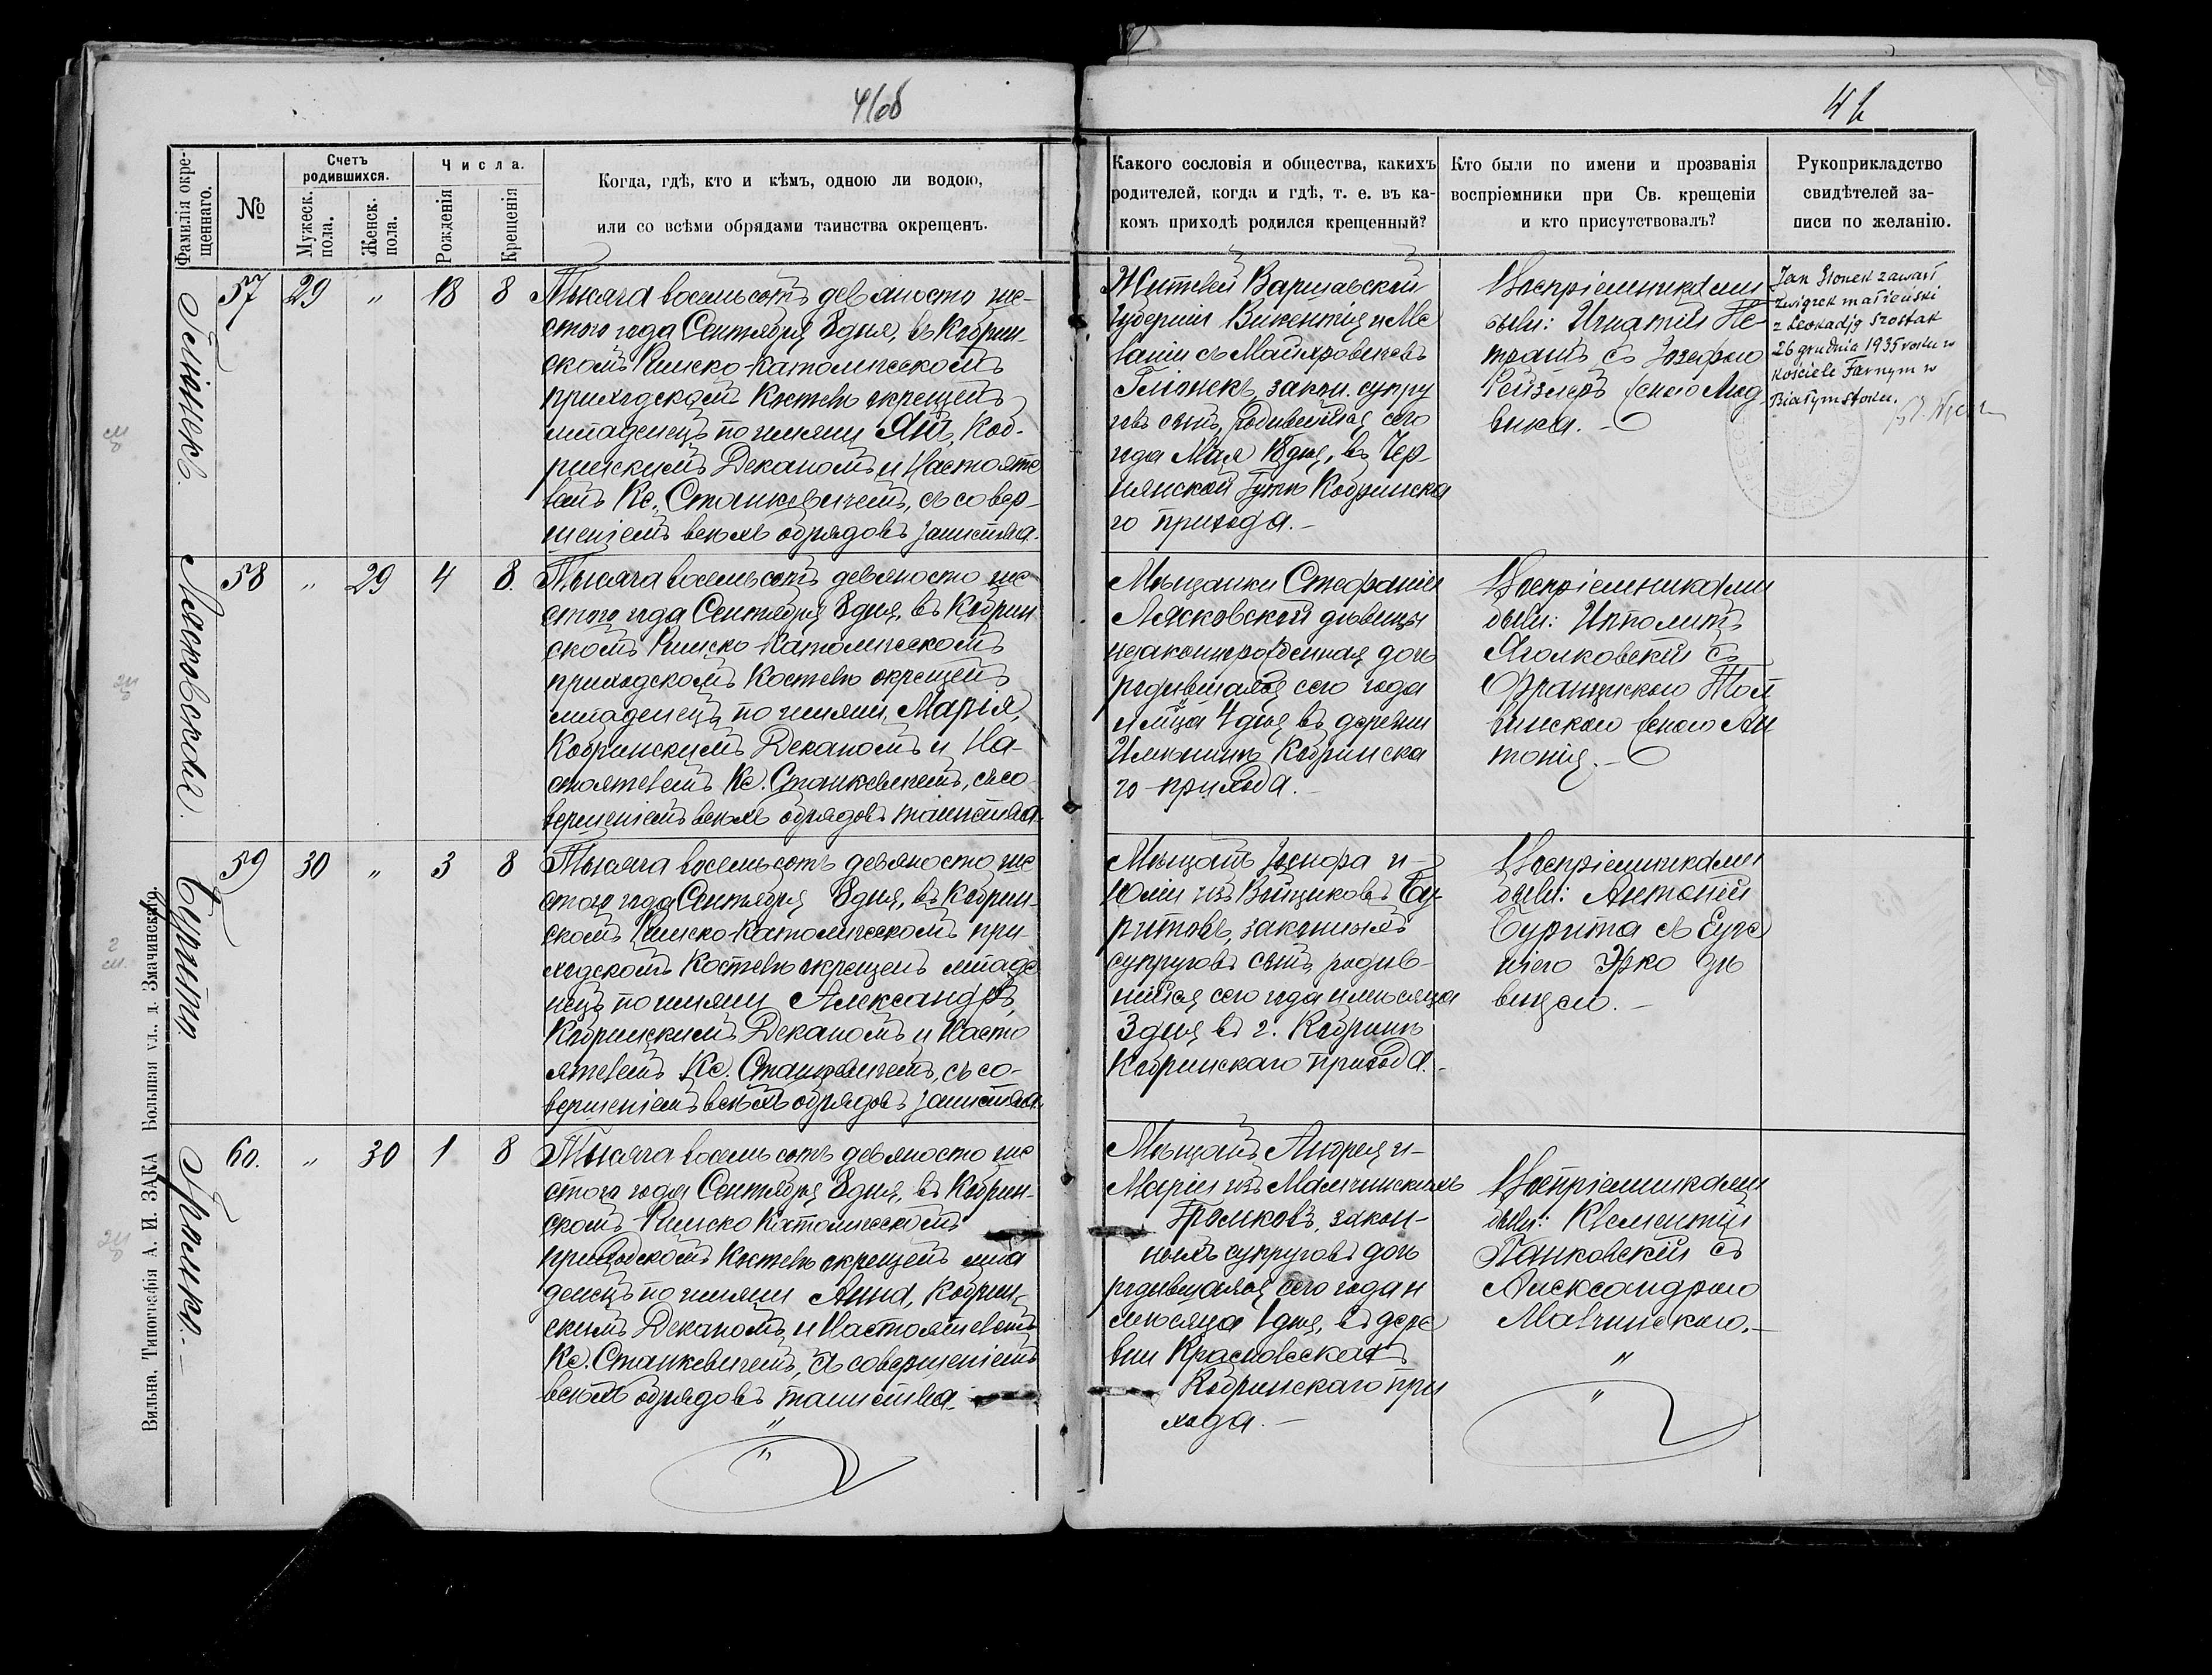 41об
41
Фамилія окре-
щеннаго.
№
Счетъ
родившихся.
Мужеск.
пола.
Женск.
пола.
Числа.
Рожденія
Крещенія
Когда, гдѣ, кто и кѣмъ, одною ли водою,
или со всѣми обрядами таинства окрещенъ.
Какого сословія и общества, какихъ
родителей, когда и гдѣ, т. е. въ ка-
комъ приходѣ родился крещенный?
Кто были по имени и прозванія
воспріемники при Св. крещеніи
и кто присутствовалъ?
Рукоприкладство
свидѣтелей за-
писи по желанію.
57 29 " 18 8
Тысяча восемьсотъ девяносто ше-
стого года Сентября 8 дня, въ Кобрин-
скомъ Римско-Католическомъ
приходскомъ Костелѣ окрещенъ
младенецъ по имяни Янъ, Коб-
ринскимъ Деканомъ и Настояте
лемъ Кс. Станкевичемъ, съ совер-
шеніемъ всѣхъ обрядовъ таинства.
Жителей Варшавской
Губерніи Викентія и Ме
ланіи съ
Гліонекъ, закон. супру
говъ сынъ, родившійся сего
года Мая 18 дня, въ Чер-
нянской Гутѣ Кобринска
го прихода.-
Воспріемниками
были: Игнатій Пе-
съ Іозефою
женою Люд
вика.-
Jan Glonek zawarł
związek małżeński
z Leokadją Szostak
26 grudnia 1935 roku w
Kościele Farnym w
Białymstoku.
Лясковская.
58 " 29 4 8.
Тысяча восемьсотъ девяносто ше
стого года Сентября 8 дня, въ Кобрин
скомъ Римско-Католическомъ
приходскомъ Костелѣ окрещенъ
младенецъ по имяни, Марія,
Кобринскимъ Деканомъ и На-
стоятелемъ Кс. Станкевичемъ, съ со-
вершеніемъ всѣхъ обрядовъ таинства.
Мѣщанки Стефаніи
Лясковской дѣвицы
незаконнорожденная дочь
родившаяся сего года
и м-ца 4 дня въ деревни
Кобринска
го прихода.-
Воспріемниками
были: Ипполитъ
Яголковскій съ
Францишкою
женою Ан
тонія.-
Бурита
59 30 " 3 8
Тысяча восемьсотъ девяносто ше
стого года Сентября 8 дня, въ Кобрин-
скомъ Римско-Католическомъ при-
ходскомъ Костелѣ окрещенъ младе
нецъ по имяни Александръ,
Кобринскимъ Деканомъ и Насто
ятелемъ Кс. Станкевичемъ, съ со-
вершеніемъ всѣхъ обрядовъ таинства.
Мѣщанъ и
Юліи изъ Бу-
ритовъ, законныхъ
супруговъ сынъ, родив-
шійся сего года и мѣсяца
3 дня въ г. Кобринѣ
Кобринскаго прихода.-
Воспріемниками
были: Антоній
Бурита съ Евге
ніею Эрко дѣ
вицею.-
60. " 30 1 8
Тысяча восемьсотъ девяносто ше
стого года Сентября 8 дня, въ Кобрин-
скомъ Римско Католическомъ
приходскомъ Костелѣ окрещенъ мла
денецъ по имяни Анна, Кобрин-
скимъ Деканомъ и Настоятелемъ
Кс. Станкевичемъ, съ совершеніемъ
всѣхъ обрядовъ таинства.
Мѣщанъ Андрея и
Маріи изъ
законн-
ныхъ супруговъ дочь
родившаяся сего года и
мѣсяца 1 дня, въ дере
вни
Кобринскаго при
хода.-
Воспріемниками
были: Клементій
Панковскій съ
Александрою
Малчинскою.-
Вильна. Типографія А. И. ЗАКА Большая ул., д. Змачинскаго.